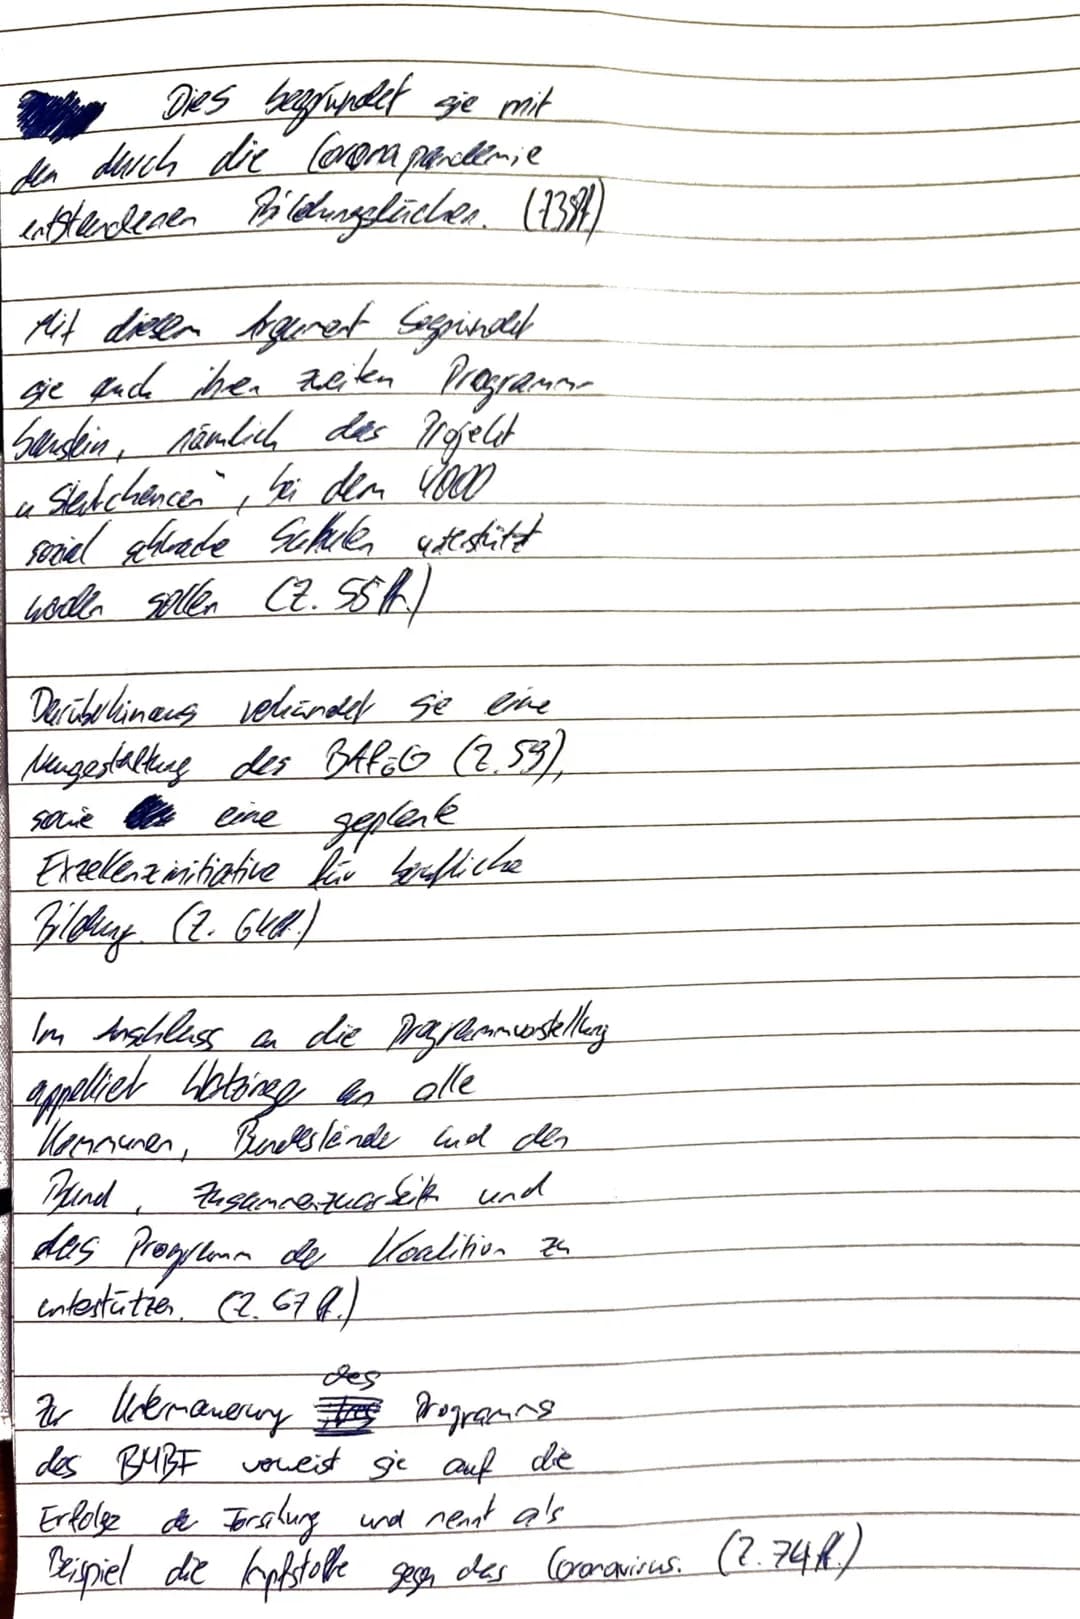 Dies begründet sie mit
den durch die Coronapandemie
entstandenen Bildungslücken.
Mit diesem Argument begründet
sie auch ihren zweiten Programm-
baustein, nämlich das Projekt
„Startchancen", bei dem 4000
sozial schwache Schulen unterstützt
werden sollen (Z. 55ff.)
Darüberhinaus verkündet sie eine
Neugestaltung des BAföG (Z. 59),
sowie eine geplante
Exzellenzinitiative für berufliche
Bildung. (Z. 64ff.)
Im Anschluss an die Programmvorstellung
appelliert an alle
Kommunen, Bundesländer und den
Bund, zusammenzuarbeiten und
das Programm der Koalition zu
unterstützen. (Z. 67ff.)
Zur Untermauerung des Programms
des BMBF verweist sie auf die
Erfolge der Forschung und nennt als
Beispiel die Impfstoffe gegen das Coronavirus. (Z. 74ff.)